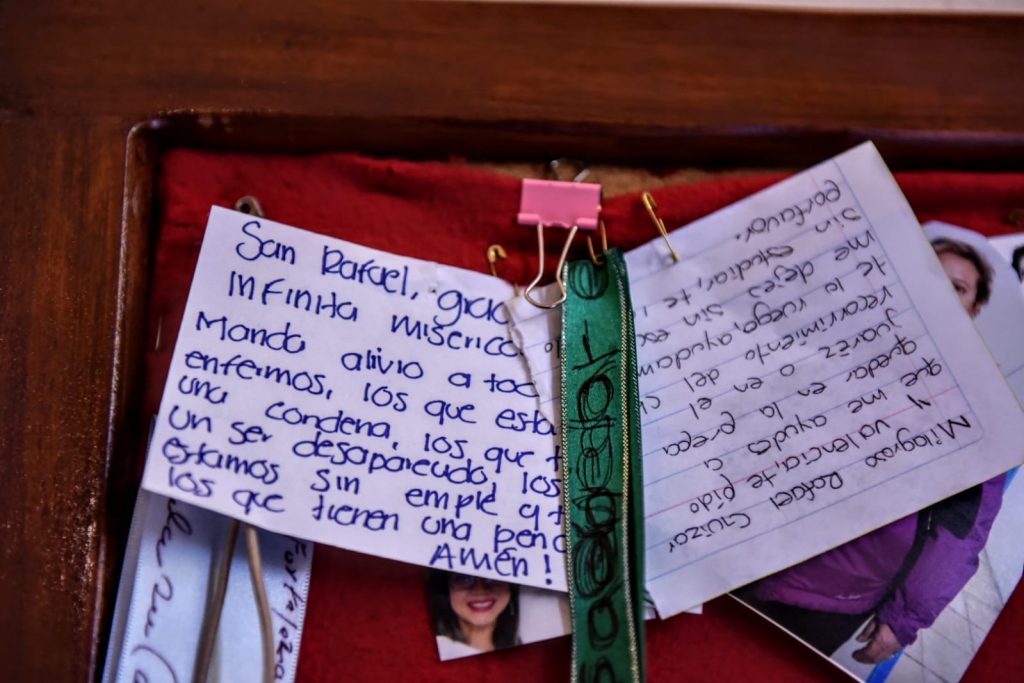 San Rafael, grac
infinita miserico
Manda alivio a tod
enfermos, los que esta
una condena, los que
un ser desaparecido, los
estamos sin emple y t
los que tienen una pena
AMÉN!
Milagroso Rafael Guízar
y valencia, te pido
que me ayuda a
quedar en la preca
juaréz o en el c
del
te lo ruego, ayudam
me dejes sin es
sin estudiar, te
porfavor.